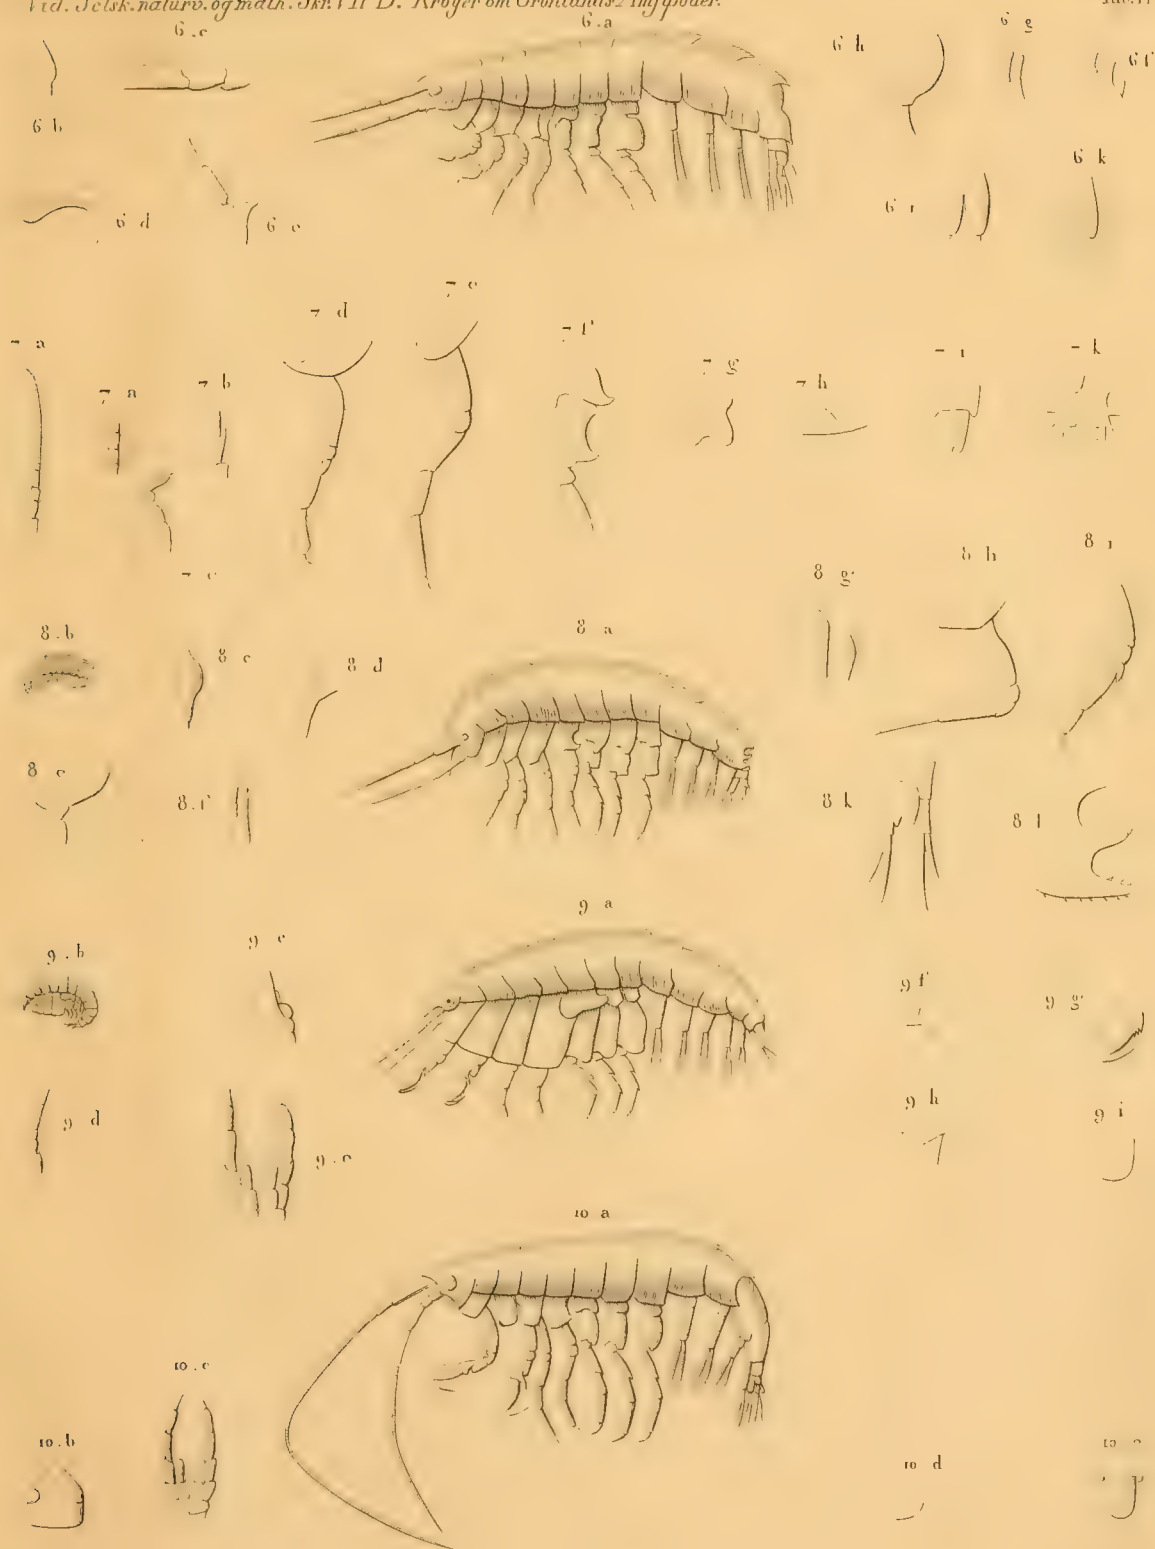 Vid. Selsk. naturv. og math. Skr. VII D. Kröyer om Grönlands Amfipoder.
6.c
6.a
6 h
6 g
6 f
6 b
6 k
6 d
6 e
6 i
7 e
7 d
7 f
7 a
7 i
7 k
7 g
7 a
7 b
7 h
8 i
8 h
8 g
7 c
8.b
8 a
8 c
8 d
8 e
8.f
8 k
8 l
9 a
9.b
9 c
9 f
9 g
9 d
9 h
9 i
9.e
10 a
10.c
10.b
10 d
10 e